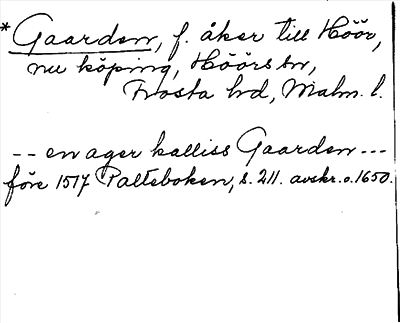 * Gaarden, f. åker till Höör,
nu köping, Höörs sn,
Frosta hd, Malm. l.
-- en ager kalliss Gaarden ---
före 1517 Palteboken, s. 211. avskr. o. 1650.